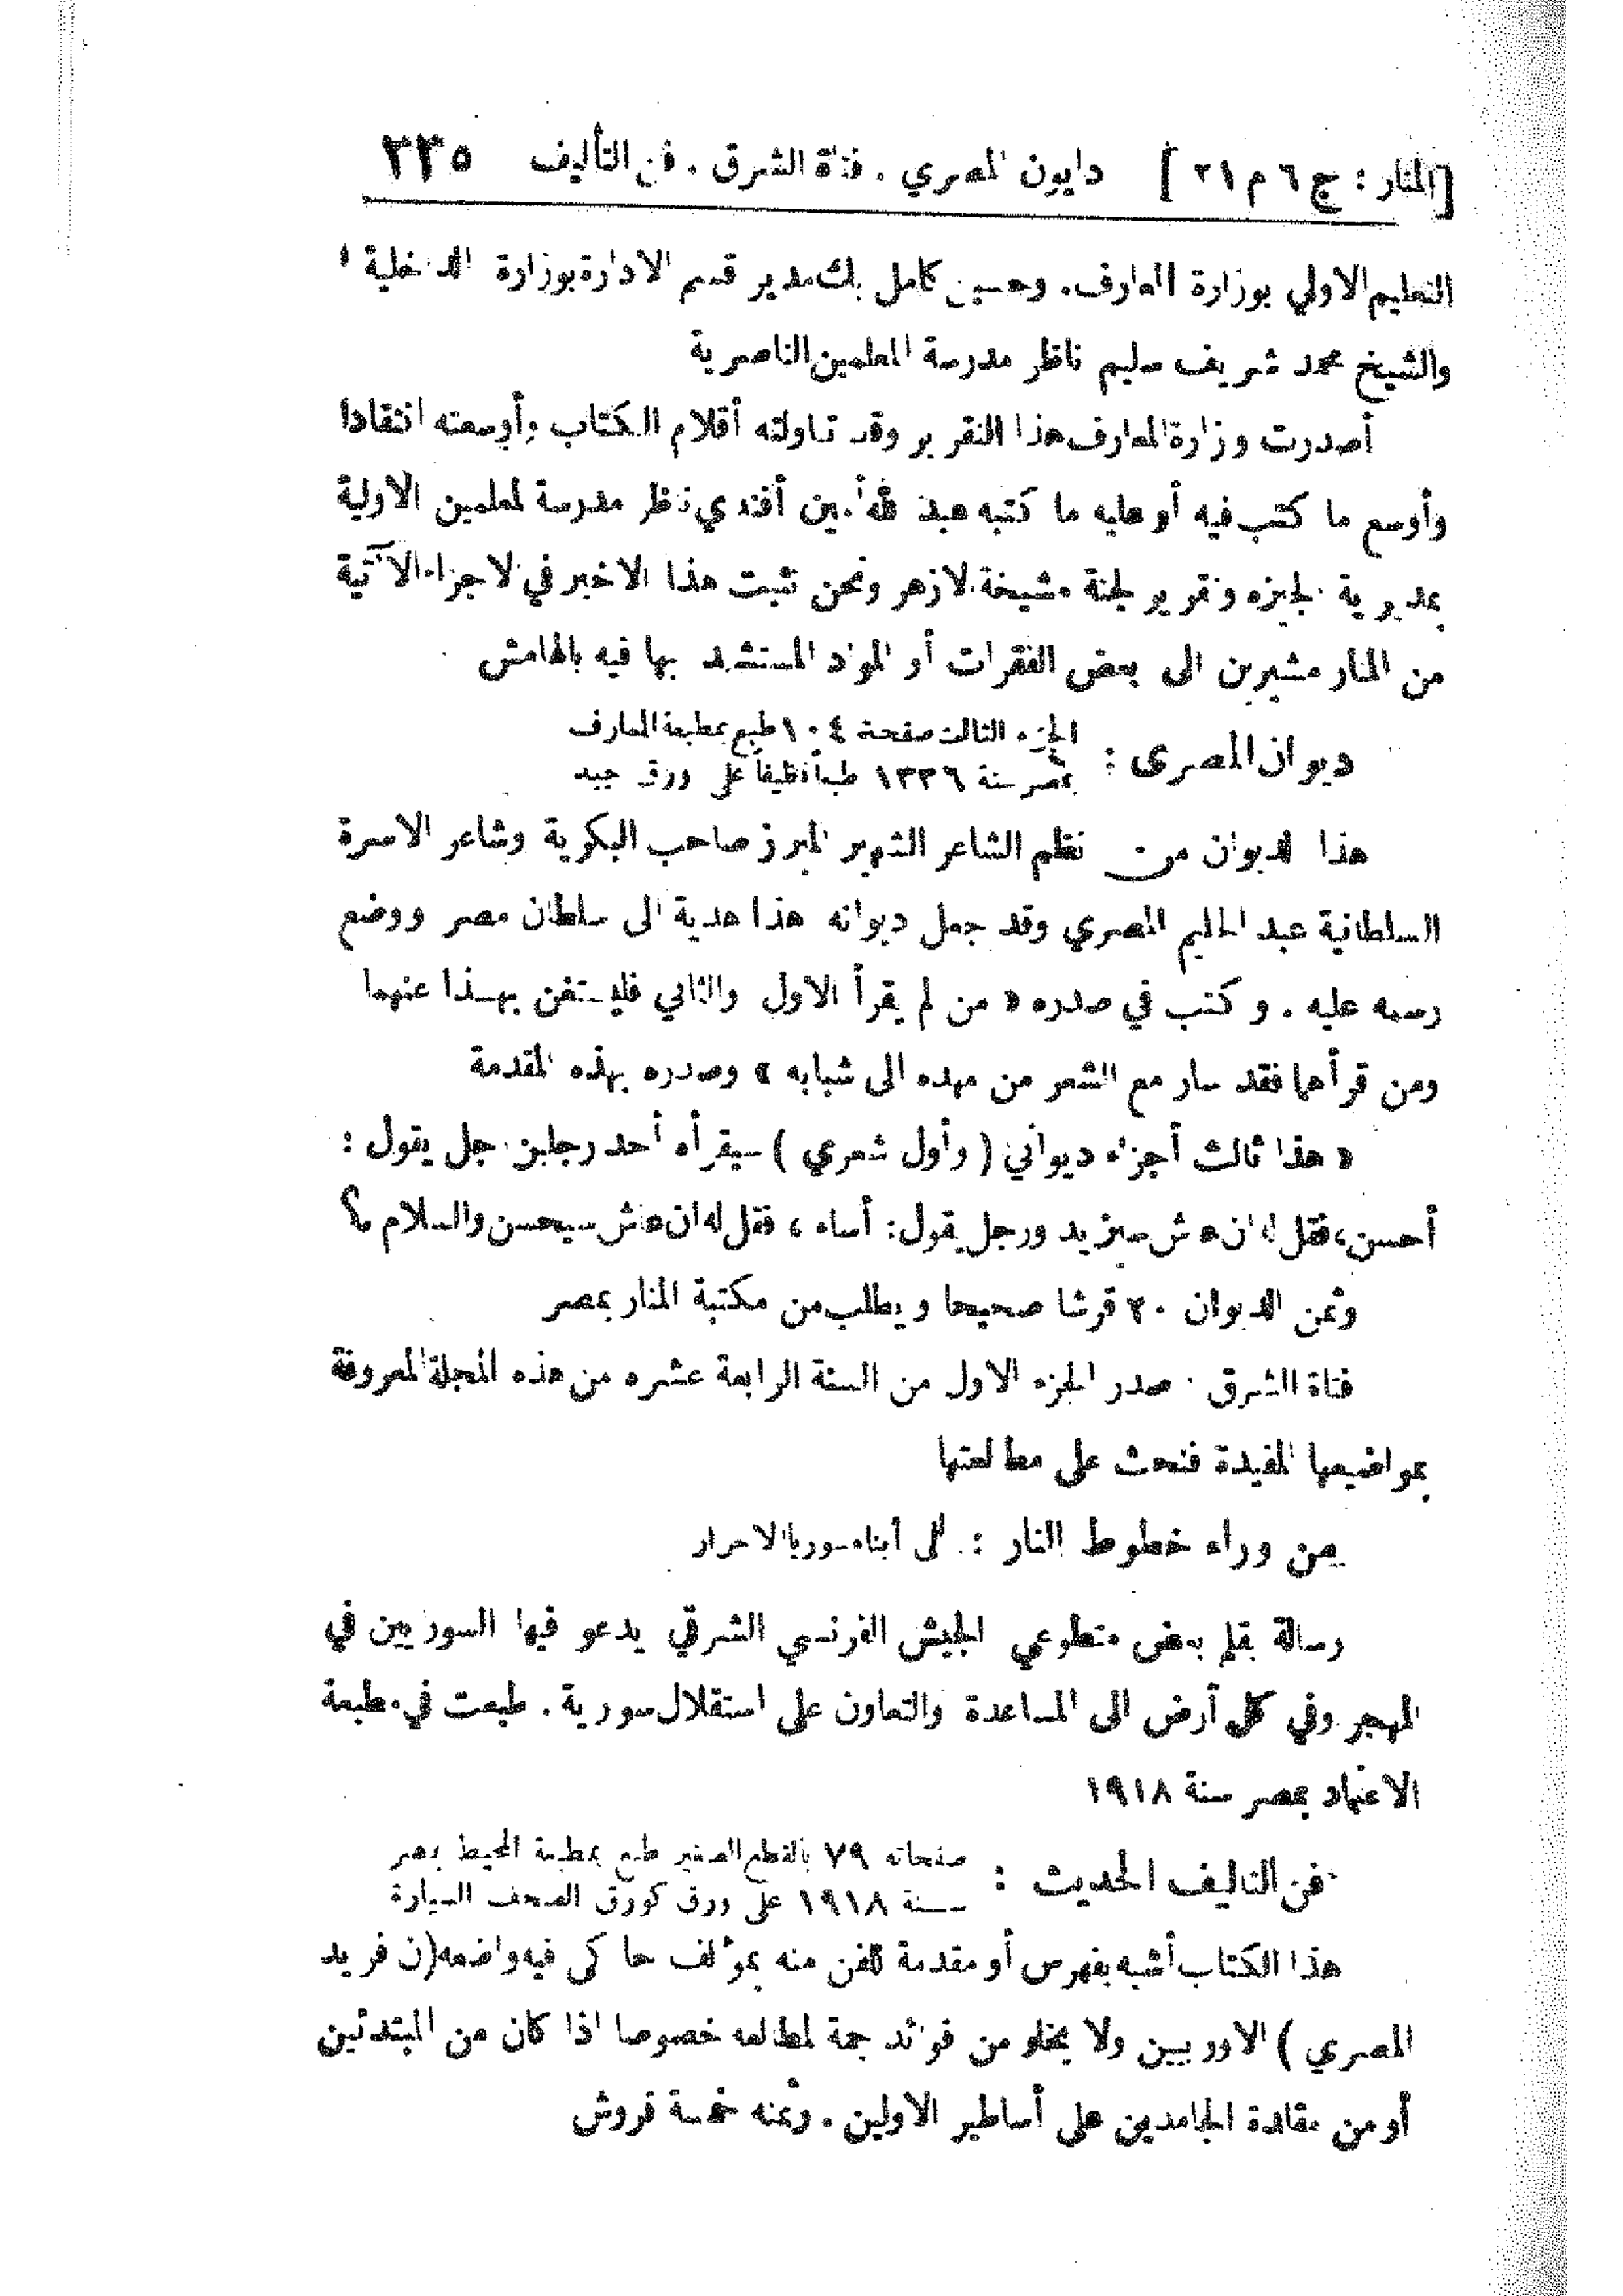 [المنار : ج ٦ م ٢١ ] دايون المصري . فتاة الشرق . فن التأليف ٣٣٥
التعليم الاولي بوزارة المعارف. وحسين كامل بك مدير قسم الادارة بوزارة الداخلية
والشيخ محمد شريف سليم ناظر مدرسة المعلمين الناصرية
أصدرت وزارة المعارف هذا التقرير وقد تناولته أقلام الكتاب وأوسعته انتقادا
وأوسع ما كتب فيه أو عليه ما كتبه عبد الله أمين أفندي ناظر مدرسة المعلمين الاولية
بمديرية الجيزه وتقرير لجنة مشيخة الازهر ونحن نثبت هذا الاخير في الاجزاء الآتية
من المنار مشيرين الى بعض الفقرات أو المواد المستشهد بها فيه بالهامش
ديوان المصرى : الجزء الثالث صفحة ١٠٤ طبع بمطبعة المعارف
بمصر سنة ١٣٣٦ طبعاً نظيفاً على ورق جيد
هذا الديوان من نظم الشاعر الشهير المبرز صاحب البكرية وشاعر الاسرة
السلطانية عبد الحليم المصري وقد جعل ديوانه هذا هدية الى سلطان مصر ووضع
رسمه عليه . وكتب في صدره « من لم يقرأ الاول والثاني فليستغن بهذا عنهما
ومن قرأهما فقد سار مع الشعر من مهده الى شبابه » وصدره بهذه المقدمة
« هذا ثالث أجزاء ديواني ( وأول شعري ) سيقرأه أحد رجلين رجل يقول :
أحسن، فقل له ان عاش سيزيد ورجل يقول: أساء ، فقل له ان عاش سيحسن والسلام »؟
وثمن الديوان ٢٠ قرشا صحيحا ويطلب من مكتبة المنار بمصر
فتاة الشرق . صدر الجزء الاول من السنة الرابعة عشره من هذه المجلة المعروفة
بمواضيعها المفيدة فنحث على مطالعتها
من وراء خطوط النار : الى أبناء سوريا الاحرار
رسالة بقلم بعض متطوعي الجيش الفرنسي الشرقي يدعو فيها السوريين في
المهجر وفي كل أرض الى المساعدة والتعاون على استقلال سورية . طبعت في مطبعة
الاعتماد بمصر سنة ١٩١٨
فن التاليف الحديث : صفحاته ٧٩ بالقطع الصغير طبع بمطبعة المحيط بمصر
سنة ١٩١٨ على ورق كورق الصحف السيارة
هذا الكتاب أشبه بفهرس أو مقدمة للفن منه بمؤلف حاكى فيه واضعه (ن فريد
المصري ) الاوربيين ولا يخلو من فوائد جمة لمطالعه خصوصا اذا كان من المبتدئين
أو من مقلدة الجامدين على أساطير الاولين . وثمنه خمسة قروش